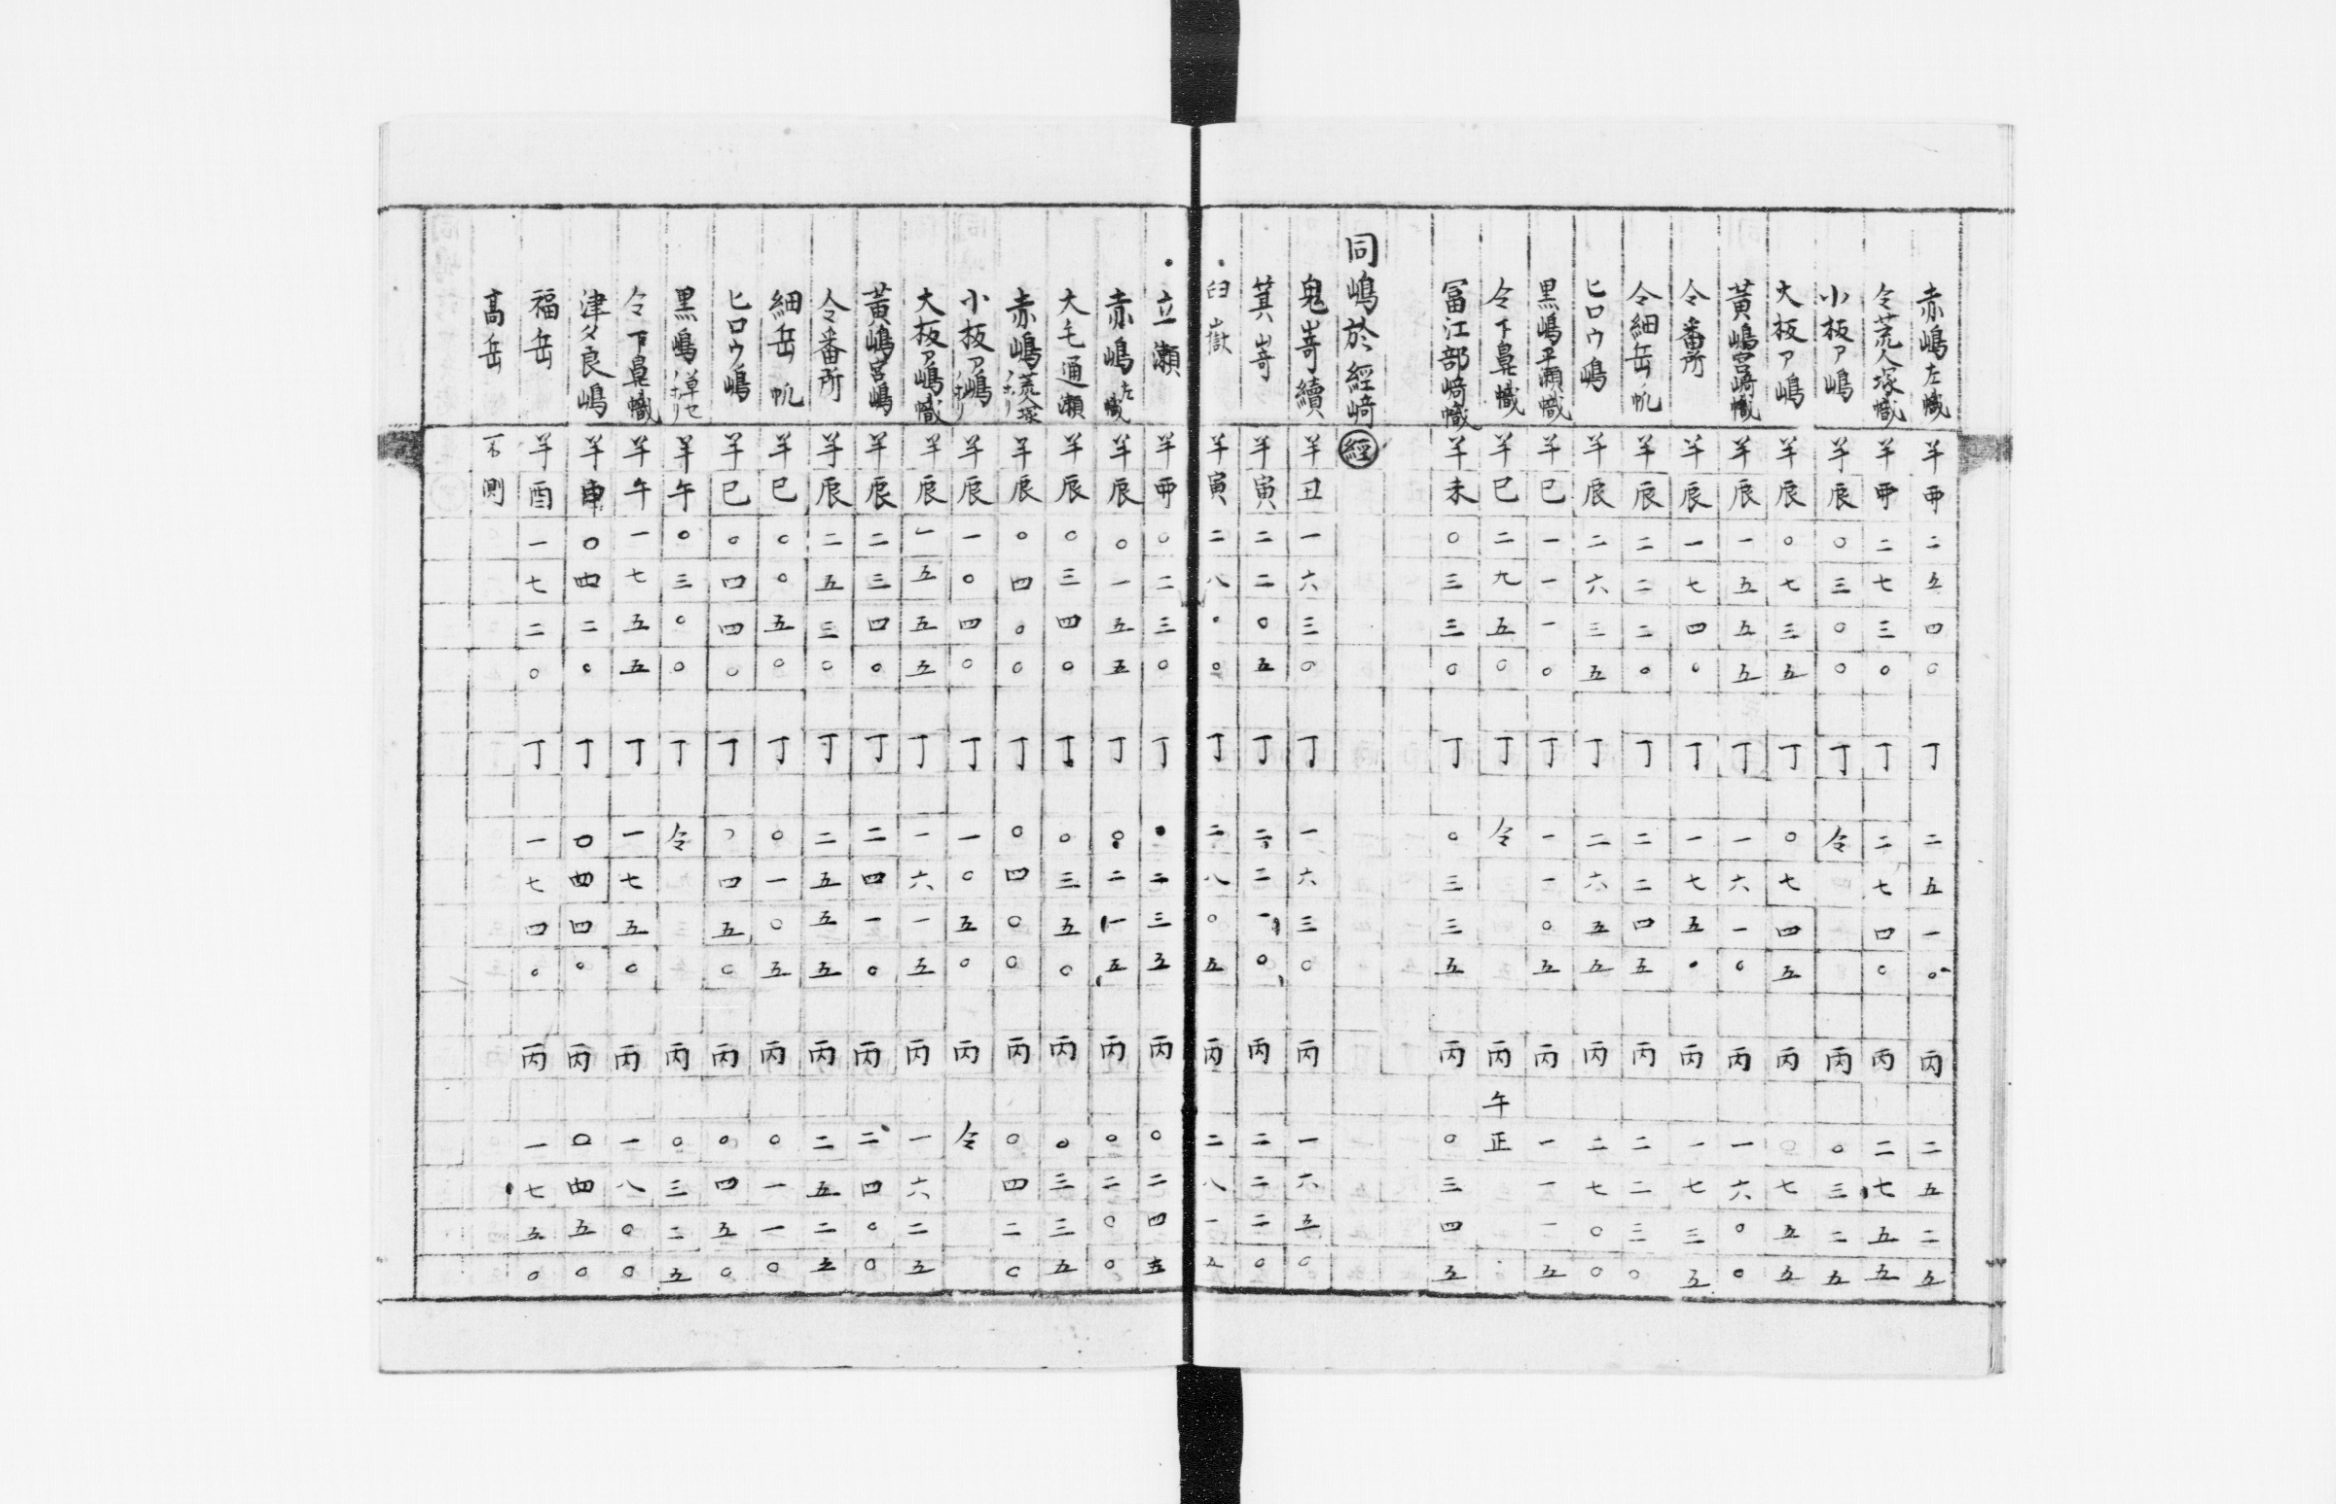 赤嶋左幟 羊 卯 二五四〇 丁 二五一〇 丙 二五二五
仝荒人塚幟 羊 卯 二七三〇 丁 二七四〇 丙 二七五五
小板ア嶋 羊 辰 〇三〇〇 丁 仝 丙 〇三二五
大板ア嶋 羊 辰 〇七三五 丁 〇七四五 丙 〇七五五
黄嶋宮﨑幟 羊 辰 一五五五 丁 一六一〇 丙 一六〇〇
仝番所 羊 辰 一七四〇 丁 一七五〇 丙 一七三五
仝細岳帆 羊 辰 二二二〇 丁 二二四五 丙 二二三〇
ヒロウ嶋 羊 辰 二六三五 丁 二六五五 丙 二七〇〇
黒嶋平瀬幟 羊 巳 一一一〇 丁 一一〇五 丙 一一一五
仝下鼻幟 羊 巳 二九五〇 丁 仝 丙 午正
冨江部﨑幟 羊 未 〇三三〇 丁 〇三三五 丙 〇三四五
同嶋於経﨑 經
鬼嵜續 羊 丑 一六三〇 丁 一六三〇 丙 一六五〇
箕嵜 羊 寅 二二〇五 丁 二二一〇 丙 二二二〇
臼嶽 羊 寅 二八〇〇 丁 二八〇五 丙 二八一五
立瀬 羊 卯 〇二三〇 丁 〇二三五 丙 〇二四五
赤嶋左幟 羊 辰 〇一五五 丁 〇二一五 丙 〇二〇〇
大毛通瀬 羊 辰 〇三四〇 丁 〇三五〇 丙 〇三三五
赤嶋荒人塚ノホリ 羊 辰 〇四〇〇 丁 〇四〇〇 丙 〇四二〇
小板ア嶋ノホリ 羊 辰 一〇四〇 丁 一〇五〇 丙 仝
大板ア嶋幟 羊 辰 一五五五 丁 一六一五 丙 一六二五
黄嶋宮嶋 羊 辰 二三四〇 丁 二四一〇 丙 二四〇〇
仝番所 羊 辰 二五三〇 丁 二五五五 丙 二五二五
細岳帆 羊 巳 〇〇五〇 丁 〇一〇五 丙 〇一一〇
ヒロウ嶋 羊 巳 〇四四〇 丁 〇四五〇 丙 〇四五〇
黒嶋草セノホリ 羊 午 〇三〇〇 丁 仝 丙 〇三二五
仝下鼻幟 羊 午 一七五五 丁 一七五〇 丙 一八〇〇
津多良嶋 羊 申 〇四二〇 丁 〇四四〇 丙 〇四五〇
福岳 羊 酉 一七二〇 丁 一七四〇 丙 一七五〇
高岳 不測